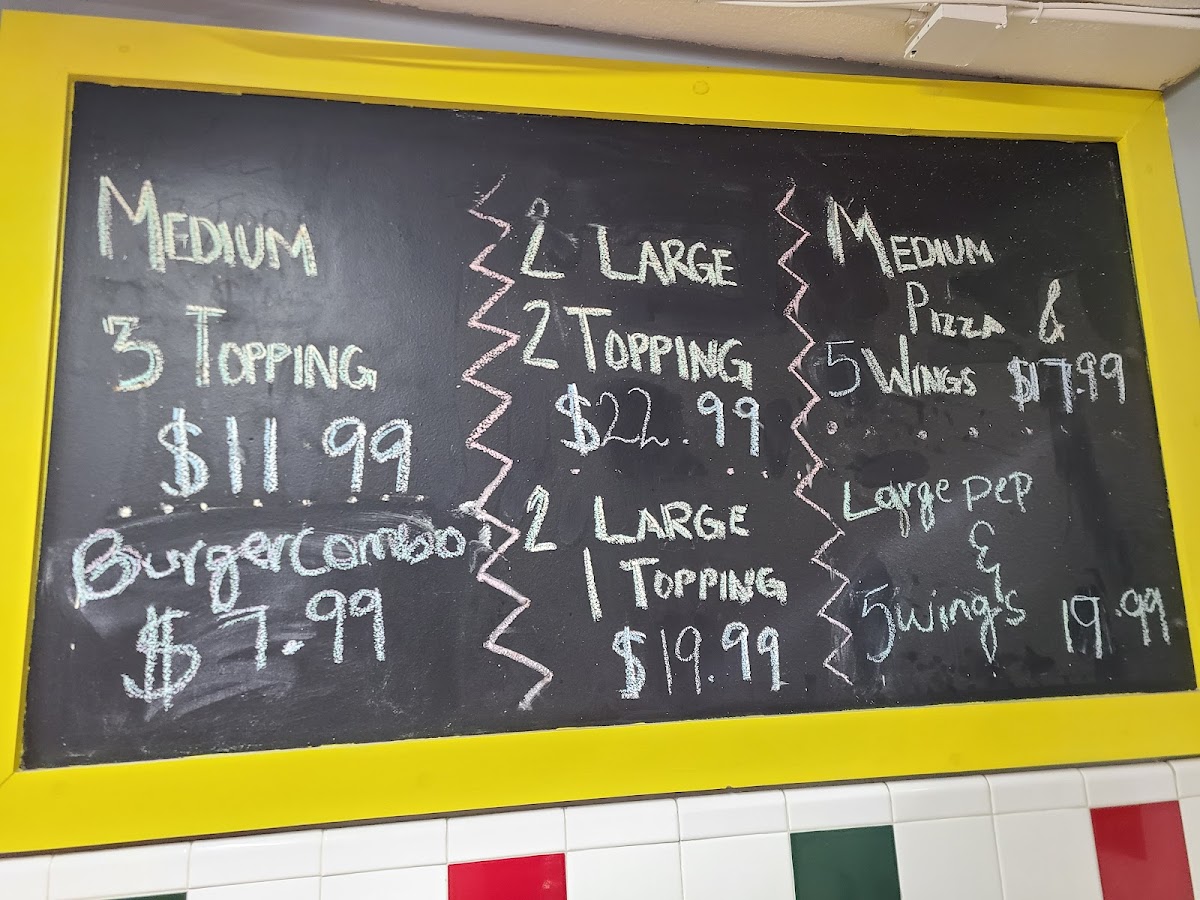 MEDIUM
3 TOPPING
$11.99
Burger combo
$7.99
2 LARGE
2 TOPPING
$22.99
2 LARGE
1 TOPPING
$19.99
MEDIUM
PIZZA &
5 WINGS $17.99
Large pep
&
5 wings 19.99